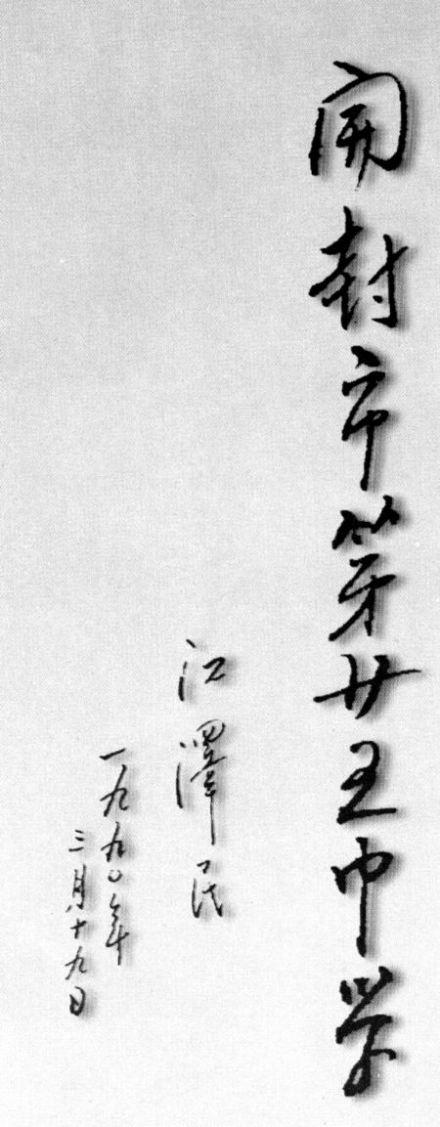 開封市第廿五中学
江澤民
一九九〇年
三月十九日